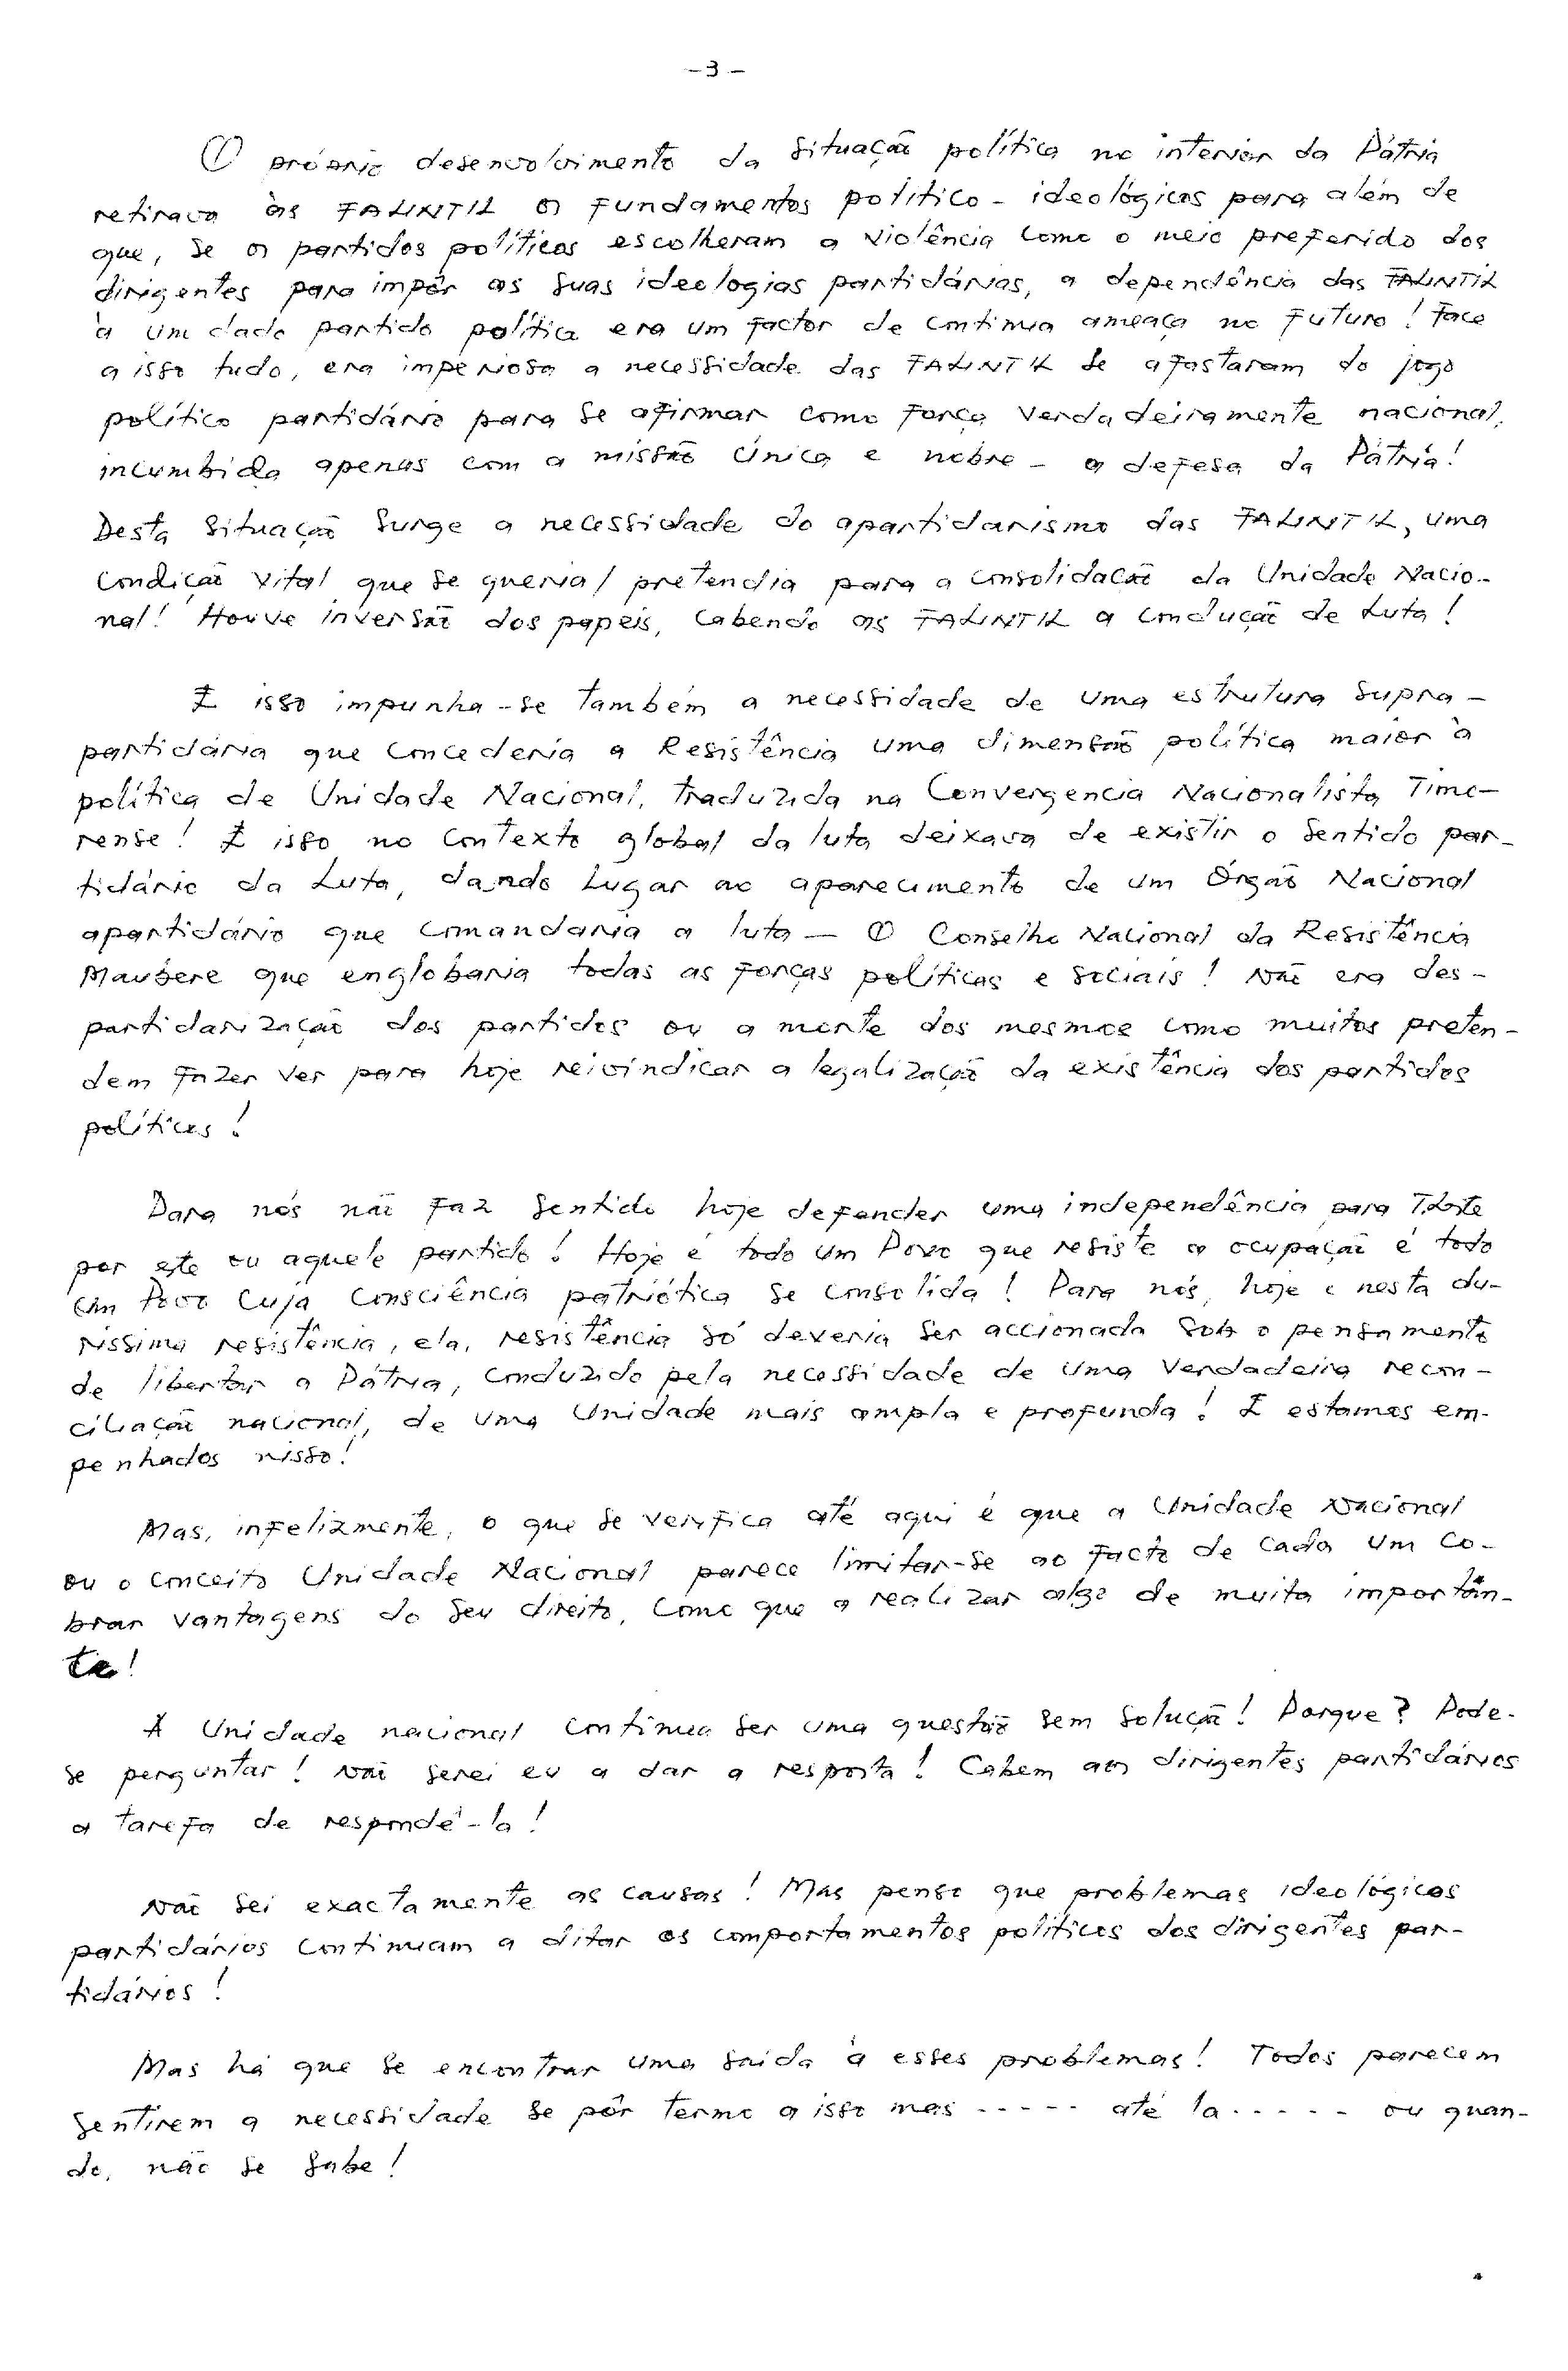 -3-
O próprio desenvolvimento da situação política no interior da Pátria
retirava às FALINTIL os fundamentos politico-ideológicos para além de
que, se os partidos políticos escolheram a violência como o meio preferido dos
dirigentes para impôr as suas ideologias partidárias, a dependência das FALINTIL
à um dado partido política era um factor de contínua ameaça no futuro! Face
a isso tudo, era imperiosa a necessidade das FALINTIL se afastaram do jogo
político partidário para se afirmar como força verdadeiramente nacional,
incumbida apenas com a missão única e nobre - a defesa da Pátria!
Desta situação surge a necessidade do apartidarismo das FALINTIL, uma
condição vital que se queria/pretendia para a consolidação da Unidade Nacio-
nal! Houve inversão dos papeis, cabendo as FALINTIL a condução de Luta!
E isso impunha-se também a necessidade de uma estrutura supra-
partidária que concederia a Resistência uma dimensão política maior à
política de Unidade Nacional, traduzida na Convergencia Nacionalista Timo-
rense! E isso no contexto global da luta deixava de existir o sentido par-
tidário da Luta, dando lugar ao aparecimento de um Órgão Nacional
apartidário que comandaria a luta - O Conselho Nacional da Resistência
Maubere que englobaria todas as forças políticas e sociais! Não era des-
partidarização dos partidos ou a morte dos mesmos como muitos preten-
dem fazer ver para hoje reivindicar a legalização da existência dos partidos
políticos!
Para nós não faz sentido hoje defender uma independência para T.Leste
por este ou aquele partido! Hoje é todo um Povo que resiste a ocupação é todo
um Povo cuja consciência patriótica se consolida! Para nós, hoje e nesta du-
ríssima resistência, ela, resistência só deveria ser accionada sob o pensamento
de libertar a Pátria, conduzido pela necessidade de uma verdadeira recon-
ciliação nacional, de uma Unidade mais ampla e profunda! E estamos em-
penhados nisso!
Mas, infelizmente, o que se verifica até aqui é que a Unidade Nacional
ou o conceito Unidade Nacional parece limitar-se ao facto de cada um co-
brar vantagens do seu direito, como que a realizar algo de muita importân-
te!
A Unidade nacional continua ser uma questão sem solução! Porque? Pode-
se perguntar! Não serei eu a dar a resposta! Cabem aos dirigentes partidários
a tarefa de respondê-la!
Não sei exactamente as causas! Mas penso que problemas ideológicos
partidários continuam a ditar os comportamentos políticos dos dirigentes par-
tidários!
Mas há que se encontrar uma saída à esses problemas! Todos parecem
sentirem a necessidade se pôr termo a isso mas ----- até la ----- ou quan-
do, não se sabe!